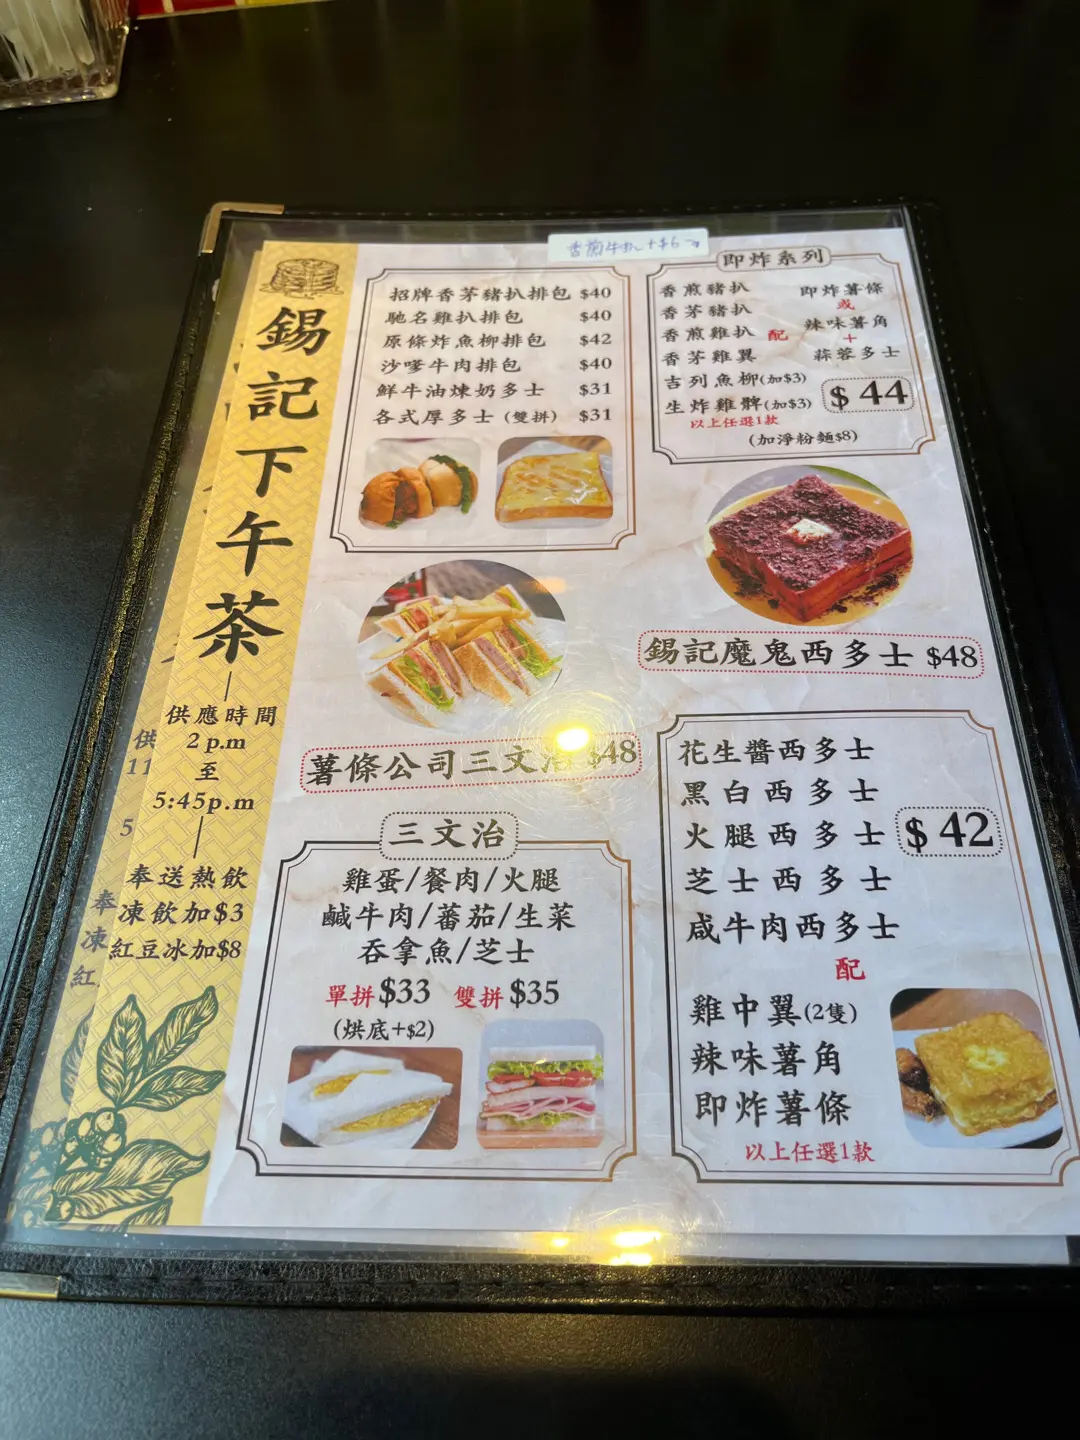 錫記下午茶
供應時間
2 p.m
至
5:45p.m
奉送熱飲
凍飲加$3
紅豆冰加$8
供
11
5
奉
凍
紅
招牌香茅豬扒排包 $40
馳名雞扒排包 $40
原條炸魚柳排包 $42
沙嗲牛肉排包 $40
鮮牛油煉奶多士 $31
各式厚多士 (雙拼) $31
薯條公司三文治 $48
三文治
雞蛋/餐肉/火腿
鹹牛肉/蕃茄/生菜
吞拿魚/芝士
單拼$33 雙拼$35
(烘底+$2)
香煎牛扒+$6
即炸系列
香煎豬扒
香茅豬扒
香煎雞扒
香茅雞翼
吉列魚柳(加$3)
生炸雞髀(加$3)
以上任選1款
配
即炸薯條
或
辣味薯角
+
蒜蓉多士
$44
(加淨粉麵$8)
錫記魔鬼西多士 $48
花生醬西多士
黑白西多士
火腿西多士
芝士西多士
咸牛肉西多士
$42
配
雞中翼(2隻)
辣味薯角
即炸薯條
以上任選1款